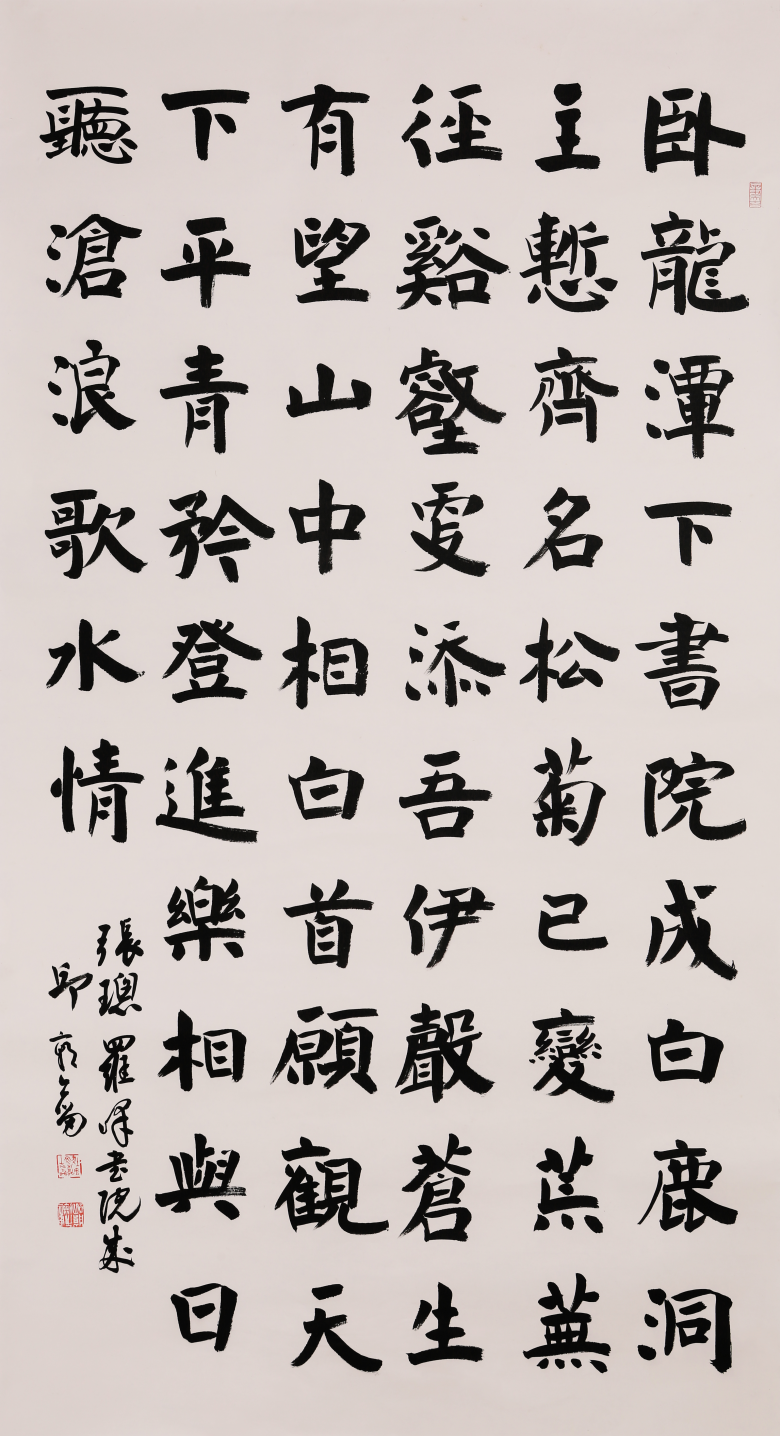 卧龍潭下書院成白鹿洞
主慙齊名松菊已變荒蕪
徑谿壑更添吾伊聲蒼生
有望山中相白首願觀天
下平青矜登進樂相與日
聽滄浪歌水情
張璁羅峰書院成
邱